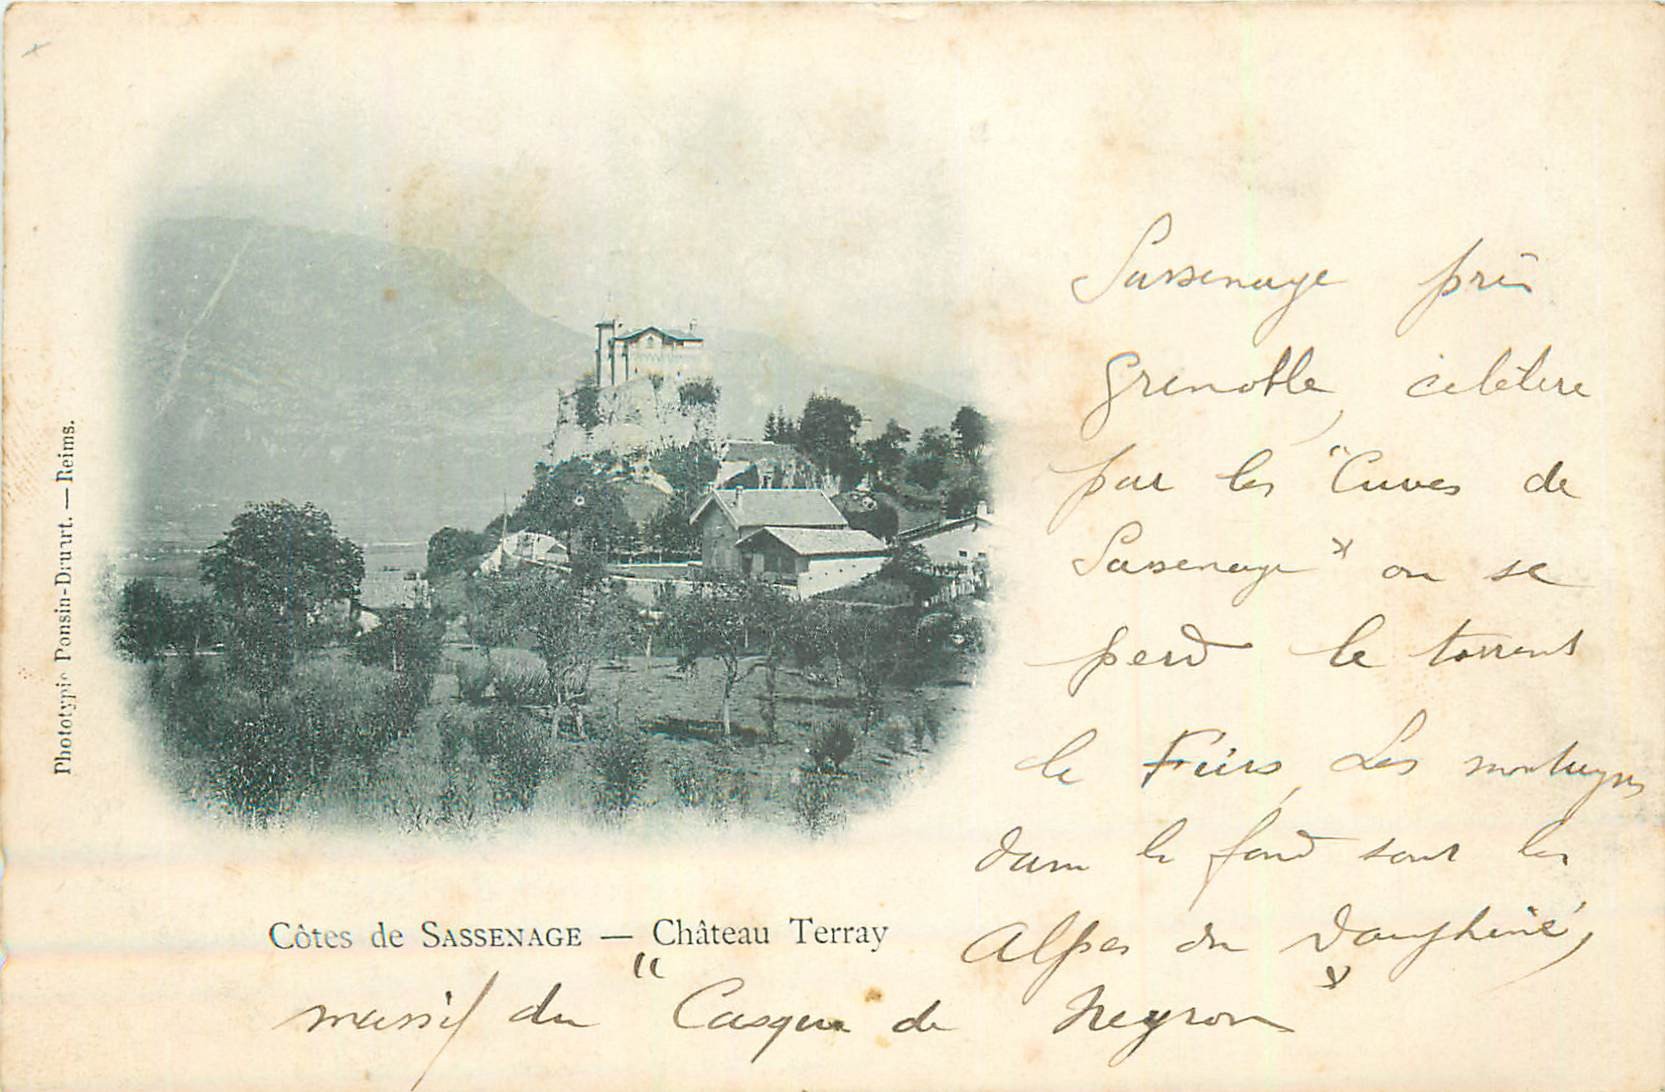 Phototypie Ponsin-Druart. — Reims.
Côtes de SASSENAGE — Château Terray
Sassenage près
Grenoble, célèbre
par les "Cuves de
Sassenage" ou se
perd le torrent
le Furs. Les montagnes
dans le fond sont les
Alpes du Dauphiné,
massif du "Casque de Neyron"